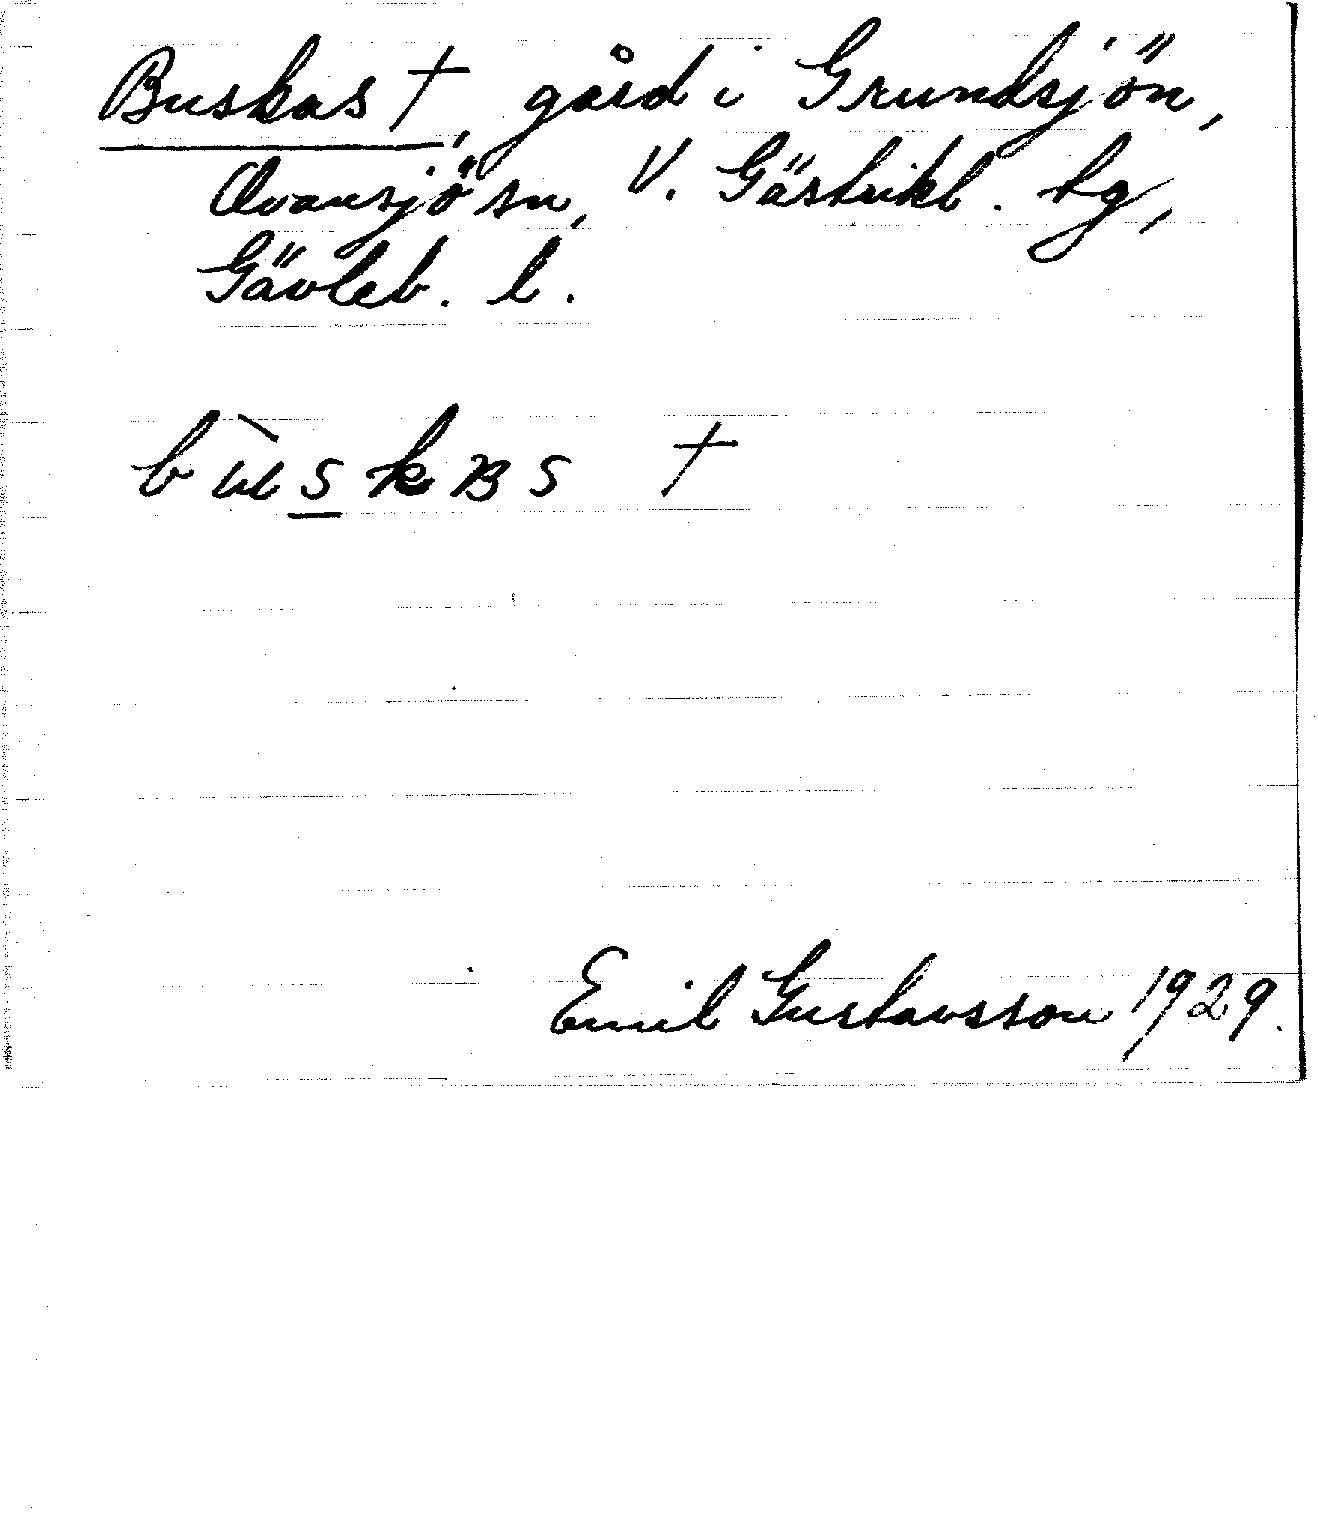 Buskas †, gård i Grundsjön,
Ovansjö sn, V. Gästrikl. tg,
Gävleb. l.
Emil Gustavsson 1929.